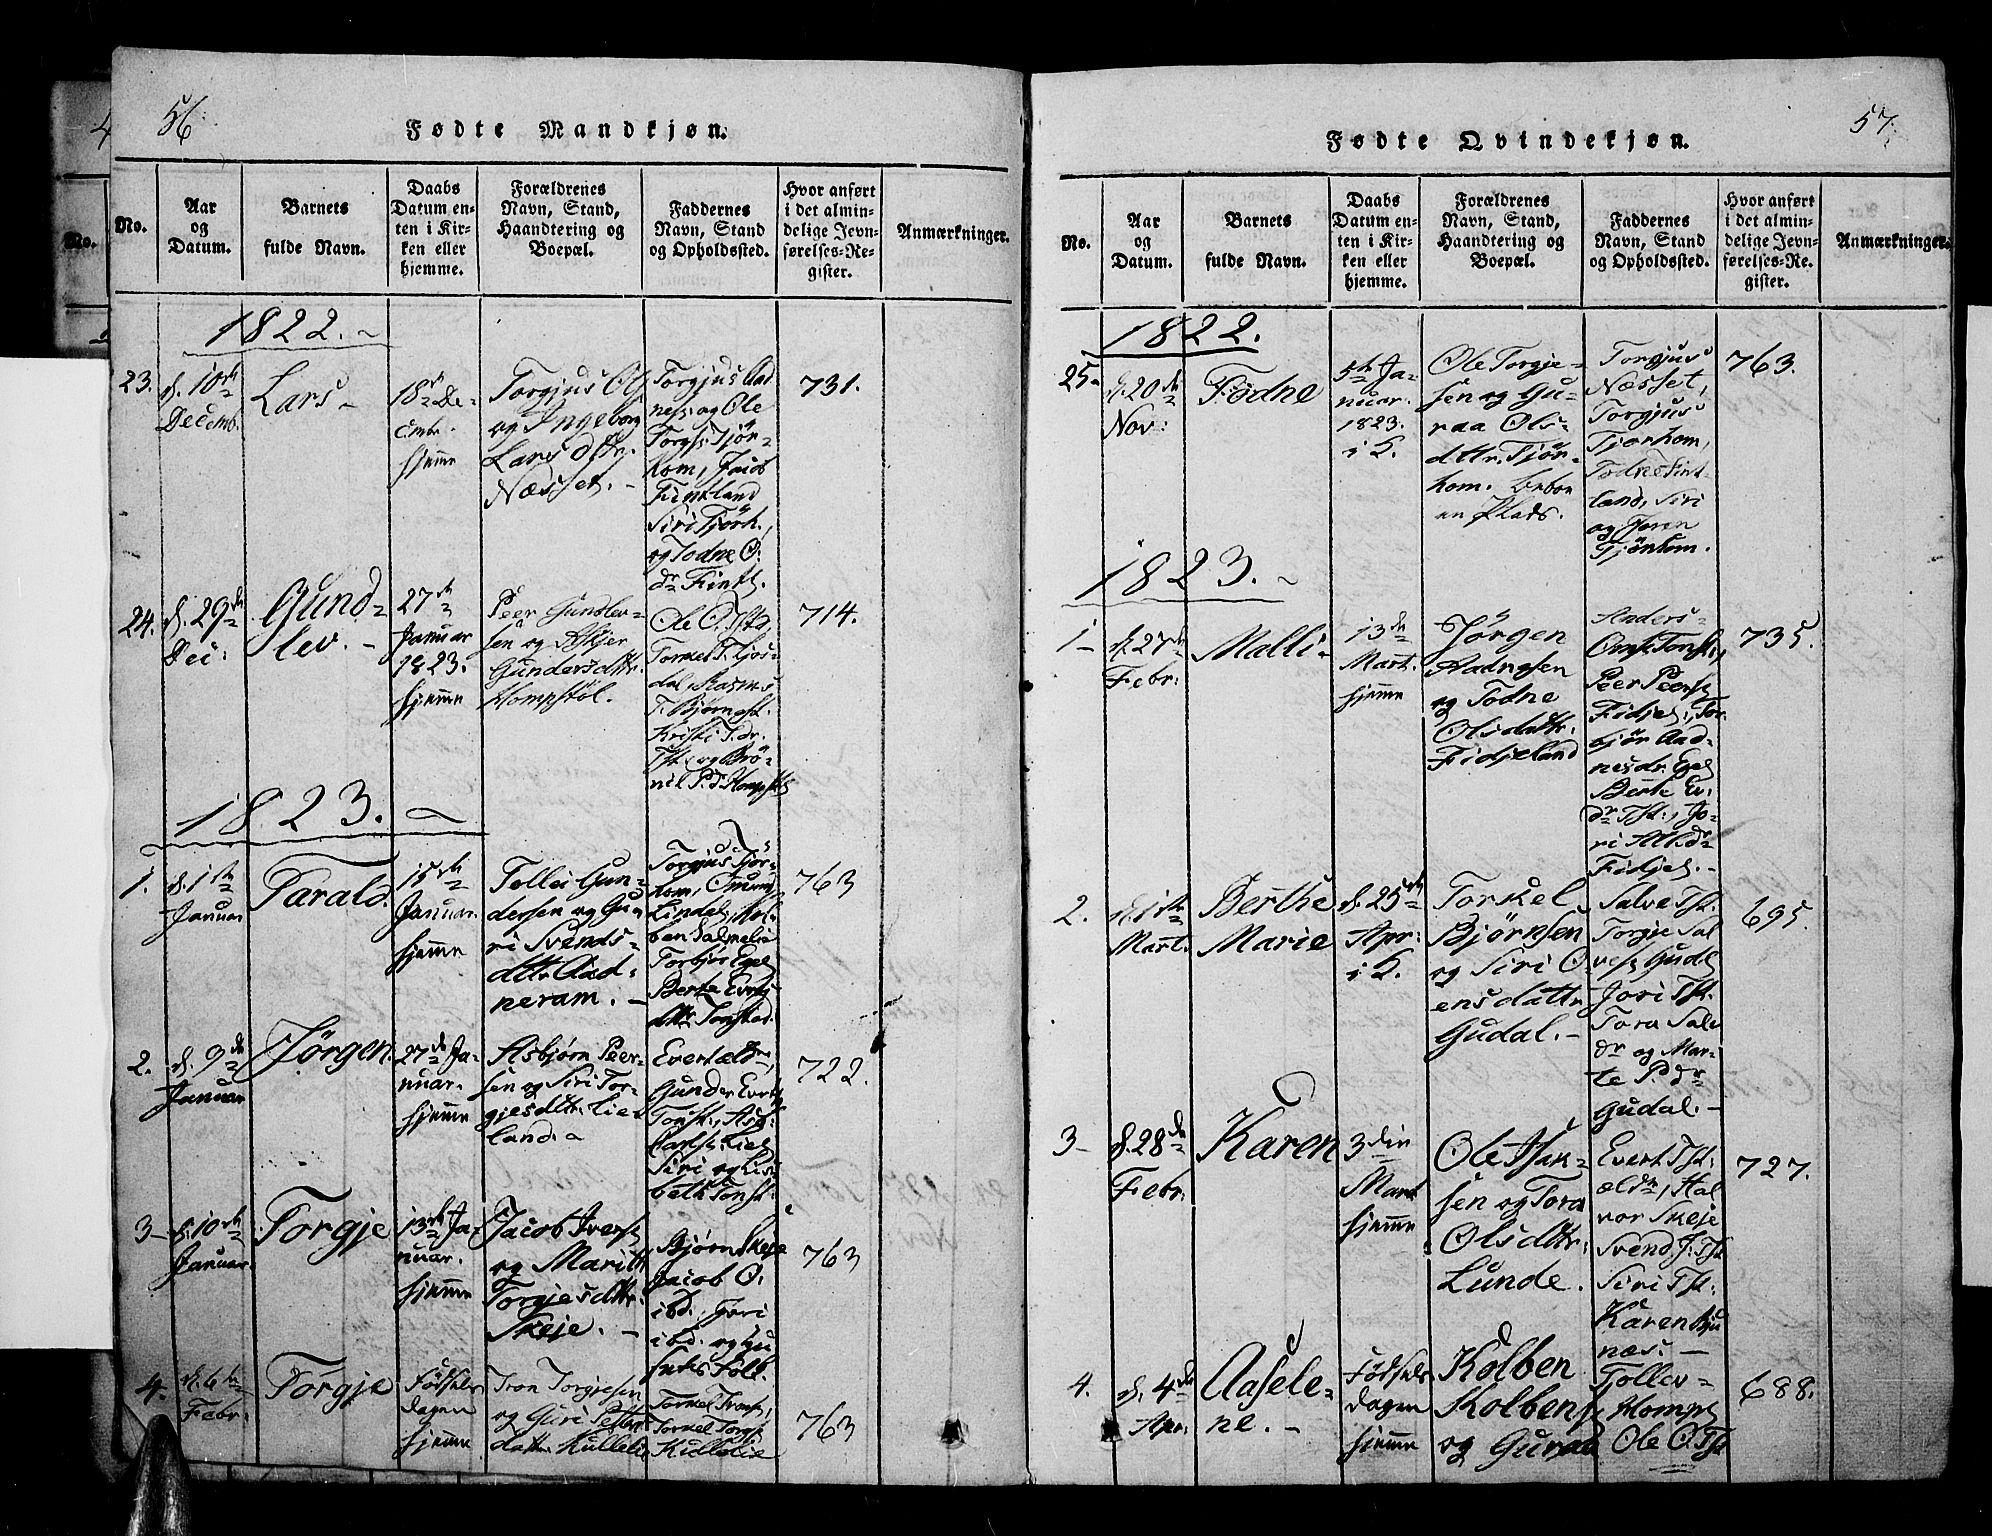 56.
Fødte Mandkjøn.
No.
Aar
og
Datum.
Barnets
fulde Navn.
Daabs
Datum en-
ten i Kir-
ken eller
hjemme.
Forældrenes
Navn, Stand,
Haandtering og
Boepæl.
Faddernes
Navn, Stand
og Opholdssted.
Hvor anført
i det almin-
delige Jevn-
førelses-Re-
gister.
Anmærkninger.
1822.
23.
d. 10de
Decemb.
Lars
18de De-
cmbr.
hjemme
Torgjus Ols
og Ingeborg
Larsdttr.
Næsset.
Torgjus Aad
nes: og Ole
Torgs: Tjör-
kom, Jacob
Fintland
Siri Tjörh.,
og Todne O.
dr Fintl.
731.
24.
d. 29de
Dec:
Gund-
lev.
27de
Januar
1823.
hjemme
Peer Gundlev-
sen og Asbjer
Gundersdttr.
Hompstöl.
Ole O.
Torkel T. Tjos-
dal, Rasmus
T. Bjørnest.
Kristi T. dr.
Tst. og Brö-
nel P. d. Hompst
714.
1823.
1.
d. 1ste
Januar
Tarald.
15de
Januar.
hjemme
Tollei Gun-
dersen og Gu-
ri Svends-
dttr. Aad-
neram.
Torgjus Tjor-
kom, Omund
Lindel, Kol-
ben Salmelie
Torbjor Egel
Berte Everts
dttr Tonstad.
763
2.
d. 9de
Januar
Jørgen.
27de Ja-
nuar.
hjemme
Asbjørn Peer-
sen og Siri Tor-
gjesdttr. Lie-
land.
Evert ældr,
Gunder Everts
Tonst., Asb:
Carlss. Liel
Siri og Lis
beth Tonst.
722.
3
d. 10de
Januar.
Torgje
13de Ja-
nuar.
hjemme
Jacob Ivers
og Marith
Torgjesdttr.
Skeje.
Bjørn Skeje
Jacob O.
ibd., Jori
ibd. og Gu
763
4.
d. 6te
Febr:
Torgje
Fødsels
dagen
hjemme
Tron Torgjesen
og Guri Petters
datter Kullelie
Torkel Trons,
Torkel Torgj.
Kullelie
763
57.
Fødte Qvindekjøn.
No.
Aar
og
Datum.
Barnets
fulde Navn.
Daabs
Datum en-
ten i Kir-
ken eller
hjemme.
Forældrenes
Navn, Stand,
Haandtering og
Boepæl.
Faddernes
Navn, Stand
og Opholdssted.
Hvor anført
i det almin-
delige Jevn-
førelses-Re-
gister.
Anmærkninger.
1822.
25.
d. 20de
Nov:
Todne
5te Ja-
nuar.
1823.
i K.
Ole Torgje-
sen og Gu-
raa Ols-
dttr. Tjör-
hom. beboe
en Plads.
Torgjus
Næsset,
Torgjus
Tjorhom,
Todne Fint-
land, Siri
og Joren
Tjönhom.
763.
1823.
1
d. 27de
Febr:
Malli
13de
Mart.
hjemme
Jørgen
Aadnesen
og Todne
Olsdattr.
Fidjeland
Anders
Omt. Tonst.,
Peer Peers
Fidjel., Tor
björ Aad-
nesdr. Egel
Berte Ev.
dr Tst., Jo-
ri Atl.dr
Fidjel.
735.
2.
d. 1ste
Mart.
Berthe
Marie
d. 25de
Apr:
i K.
Torkel
Bjørnsen
og Siri O-
ensdattr
Gudal.
Salve Tst.
Torgje Sal
ves. Gudal
Jori Tst.
Tora Salv
dr og Mar-
te P. dr
Gudal.
695.
3
d. 28de
Febr:
Karen
3die
Mart
hjemme
Ole Isak-
sen og Tora
Olsdttr.
Lunde.
Evert Tst:
ældr, Hal
vor Skeje
Svend J: Tst
Siri Tst.
Karen Bju
næs.
727.
4.
d. 4de
Apr:
Aasele-
ne.
Fødsels
dagen
hjemme
Kolben
Kolbens
og Guraa
Tollev
Homps
Ole O. Tst
688.